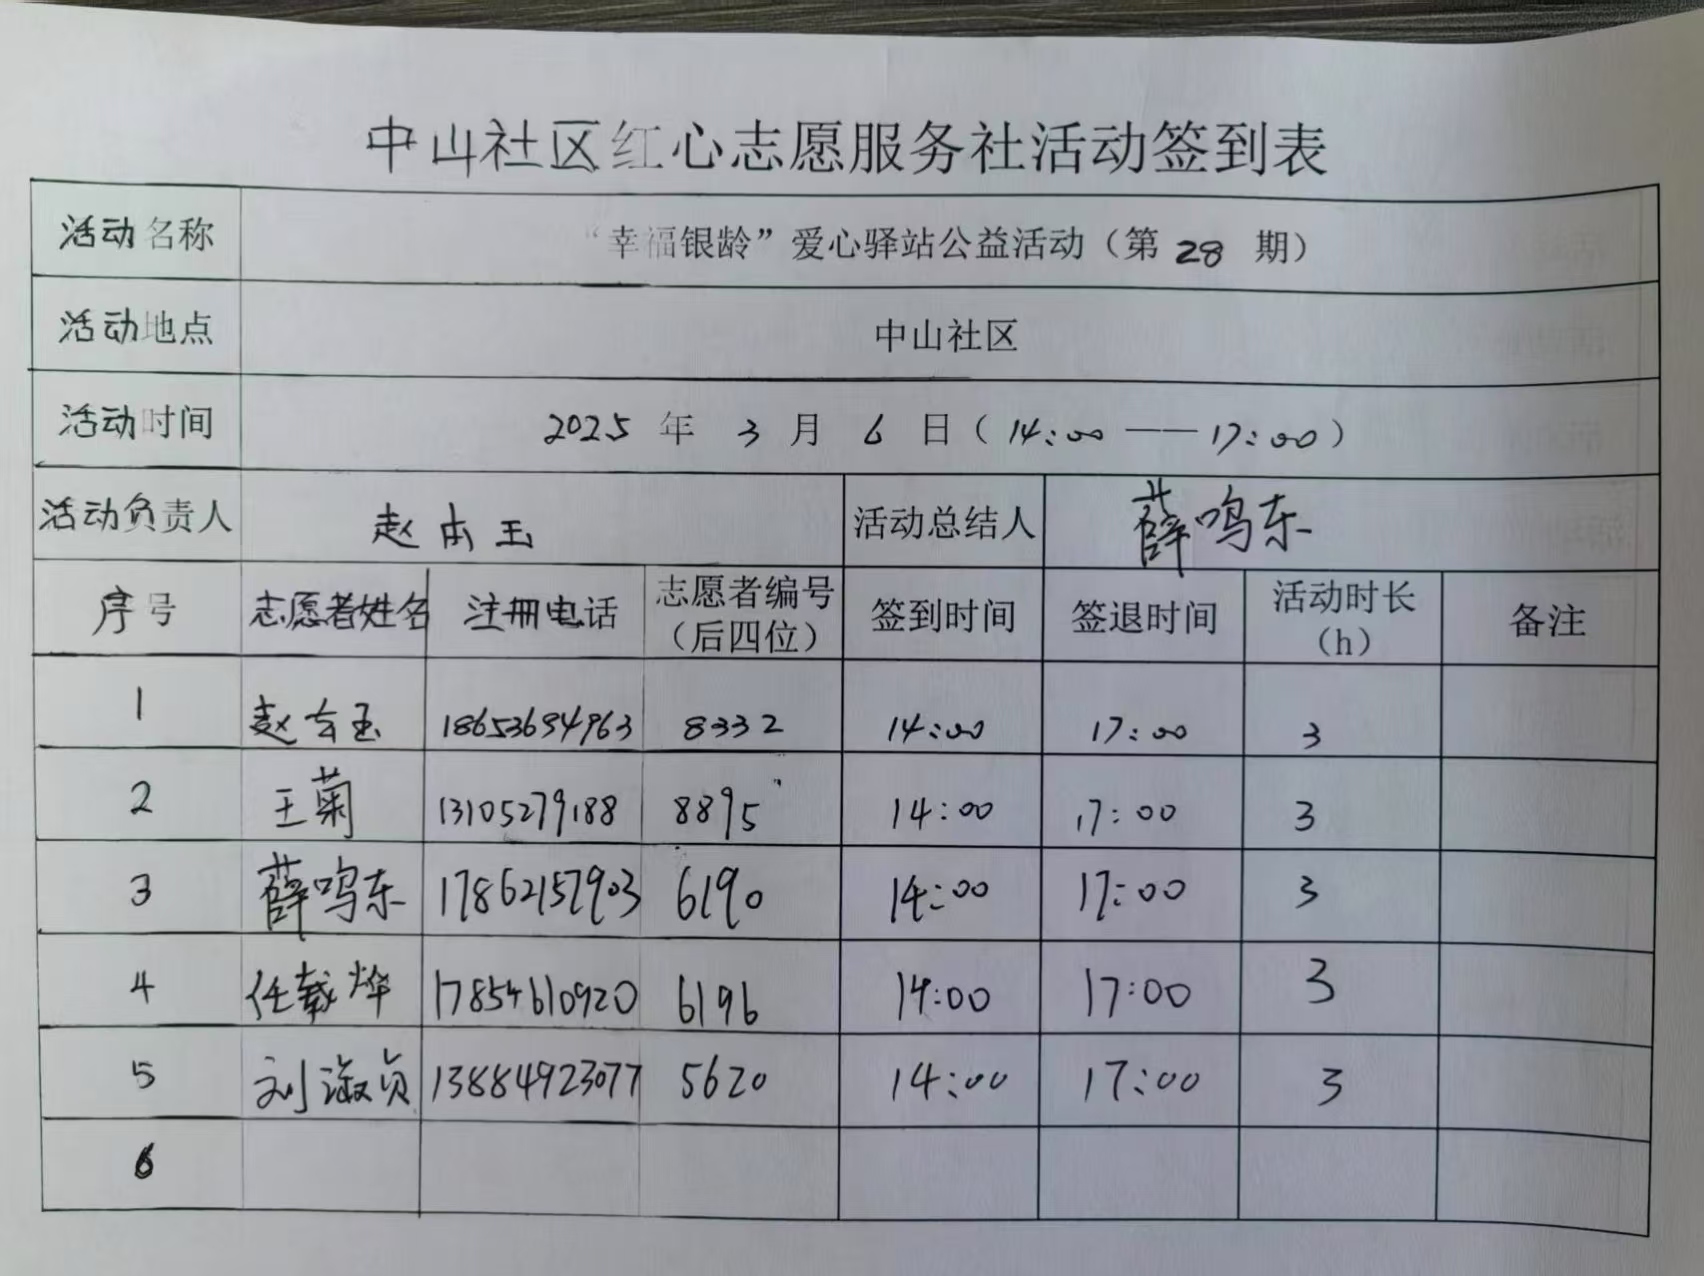 中山社区红心志愿服务社活动签到表
活动名称 “幸福银龄”爱心驿站公益活动（第 28 期）
活动地点 中山社区
活动时间 2025 年 3 月 6 日（14:00 —— 17:00）
活动负责人 赵 玉 活动总结人 薛鸣东
序号 志愿者姓名 注册电话 志愿者编号（后四位） 签到时间 签退时间 活动时长（h） 备注
1 赵 玉 18653694963 8332 14:00 17:00 3
2 王菊 13105279188 8895 14:00 17:00 3
3 薛鸣东 17862157903 6190 14:00 17:00 3
4 任载烨 17854610920 6196 14:00 17:00 3
5 刘淑贞 13884923077 5620 14:00 17:00 3
6